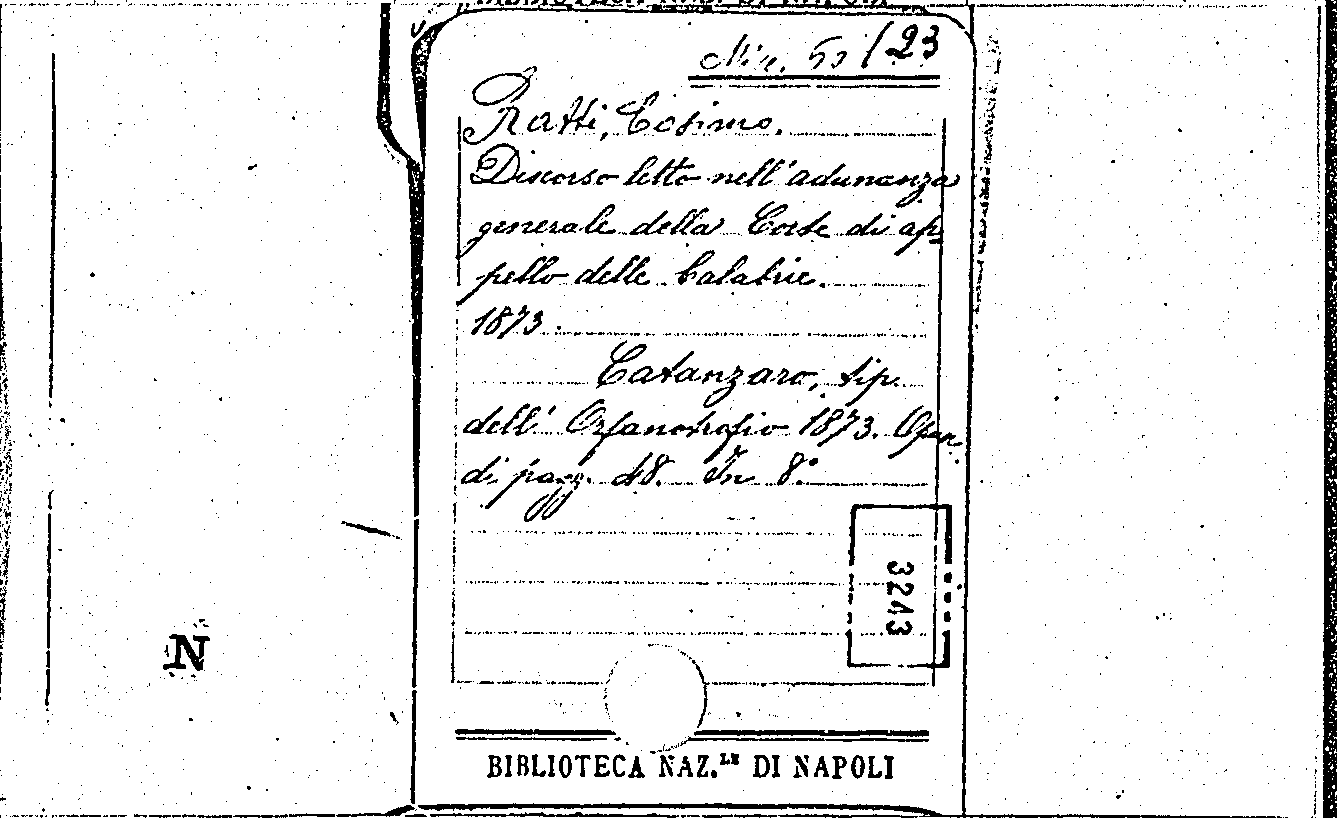 Misc. 53/23
Ratti, Cosimo.
Discorso letto nell'adunanza
generale della Corte di ap-
pello delle Calabrie.
1873.
Catanzaro, tip.
dell' Orfanotrofio 1873. Opusc.
di pagg. 48. In 8.°
3243
N
BIBLIOTECA NAZ.LE DI NAPOLI